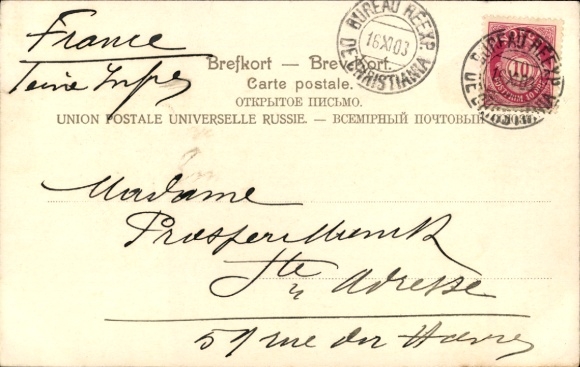 France
BUREAU REEXP.
16 XI 03
DE CHRISTIANIA
BUREAU REEXP.
DE CHRISTIANIA
10
Brefkort — Brevkort.
Carte postale.
ОТКРЫТОЕ ПИСЬМО.
UNION POSTALE UNIVERSELLE RUSSIE. — ВСЕМІРНЫЙ ПОЧТОВЫЙ
Madame
Prosper
Ste Adresse
rue du Havre